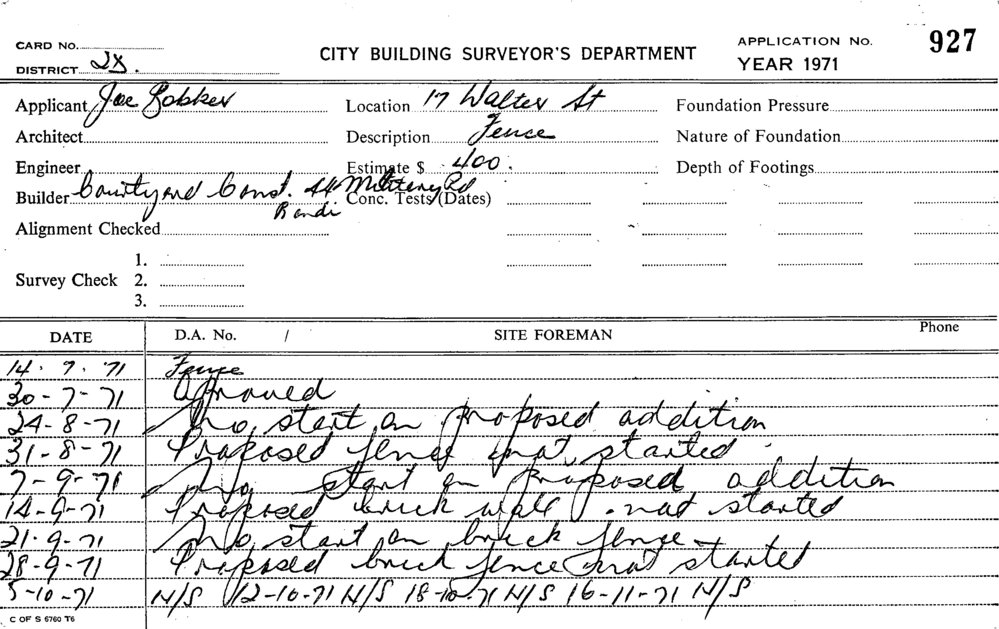 CARD No.
DISTRICT 2X.
CITY BUILDING SURVEYOR'S DEPARTMENT
APPLICATION No. 927
YEAR 1971
Applicant Joe
Location 17 Walter St
Foundation Pressure
Architect
Description Fence
Nature of Foundation
Engineer
Estimate $ 400.
Depth of Footings
Builder Courtyard Const. 44 Military Rd
Randi
Conc. Tests (Dates)
Alignment Checked
1.
Survey Check 2.
3.
DATE D.A. No. / SITE FOREMAN Phone
14. 7. 71 Fence
30-7-71 Approved
24-8-71 No start on proposed addition
31-8-71 Proposed fence not started
7-9-71 No start on proposed addition
14-9-71 Proposed brick wall not started
21.9.71 No start on brick fence
28-9-71 Proposed brick fence not started
5-10-71 N/S 12-10-71 N/S 18-10-71 N/S 16-11-71 N/S
C OF S 6760 T6